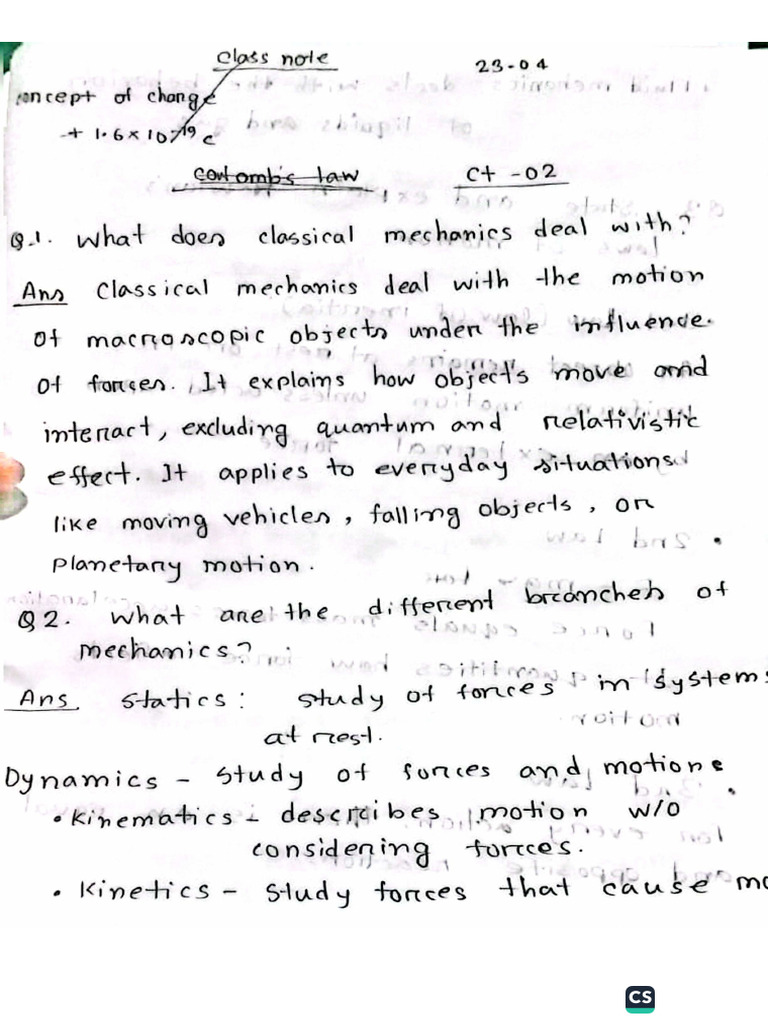 Class note 23-04
oncept of change
+ 1.6 × 10⁻¹⁹ c
Coulomb's law Ct -02
Q.1. What does classical mechanics deal with?
Ans Classical mechanics deal with the motion
of macroscopic objects under the influence.
of forces. It explains how objects move and
interact, excluding quantum and relativistic
effect. It applies to everyday situations
like moving vehicles, falling objects, or
planetary motion.
Q 2. What are the different branches of
mechanics?
Ans Statics: study of forces in system
at rest.
Dynamics - study of forces and motions
• Kinematics - describes motion w/o
considering forces.
• Kinetics - study forces that cause mo
CS